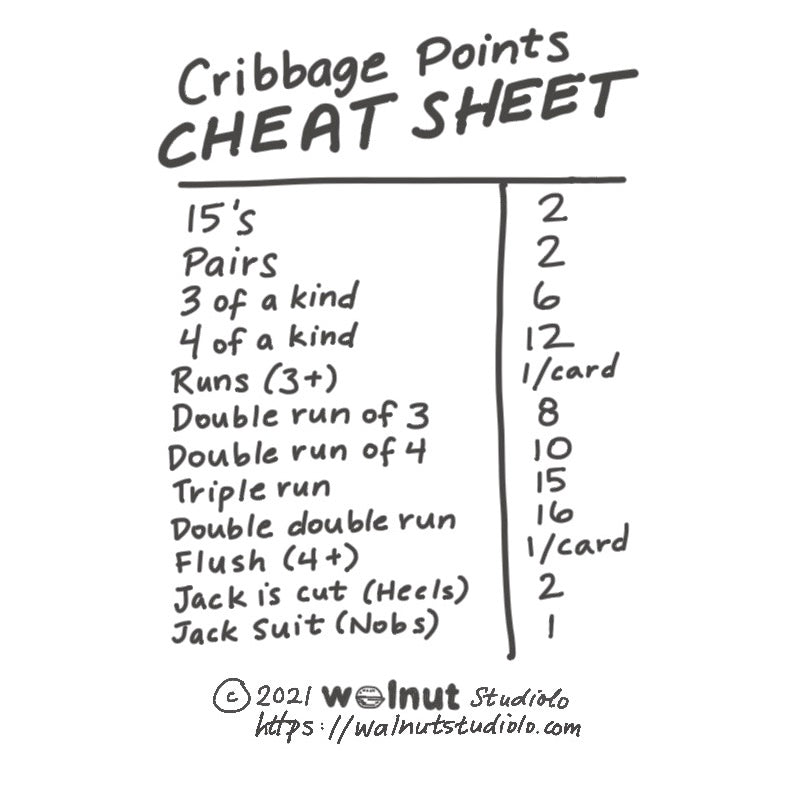 Cribbage Points
CHEAT SHEET
15's 2
Pairs 2
3 of a kind 6
4 of a kind 12
Runs (3+) 1/card
Double run of 3 8
Double run of 4 10
Triple run 15
Double double run 16
Flush (4+) 1/card
Jack is cut (Heels) 2
Jack Suit (Nobs) 1
© 2021 walnut Studiolo
https://walnutstudiolo.com